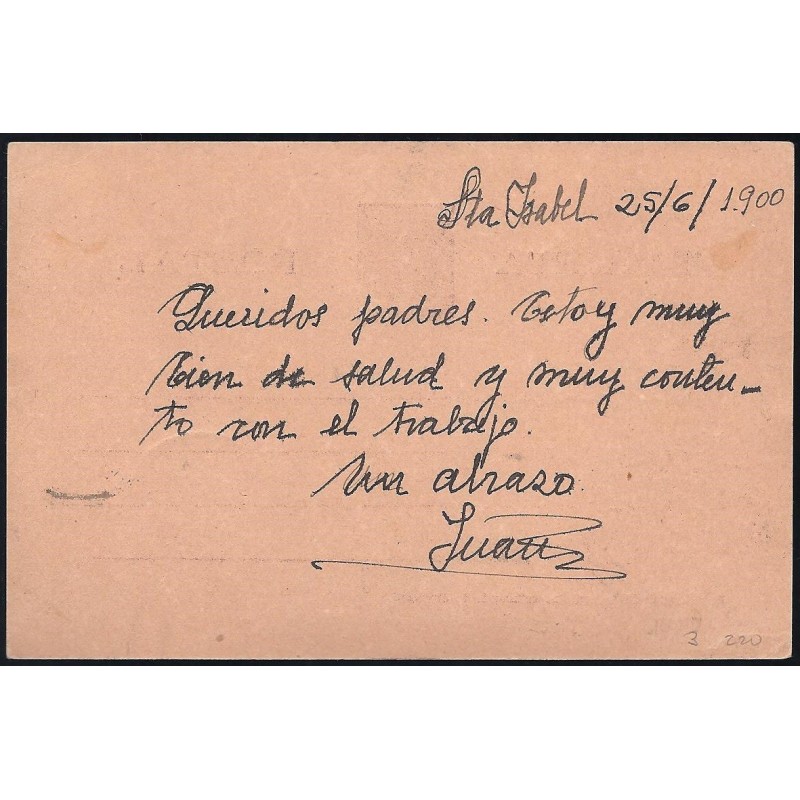 Sta Isabel 25/6/1.900
Queridos padres. Estoy muy
bien de salud y muy conten-
to con el trabajo.
Un abrazo
Juan
3 220